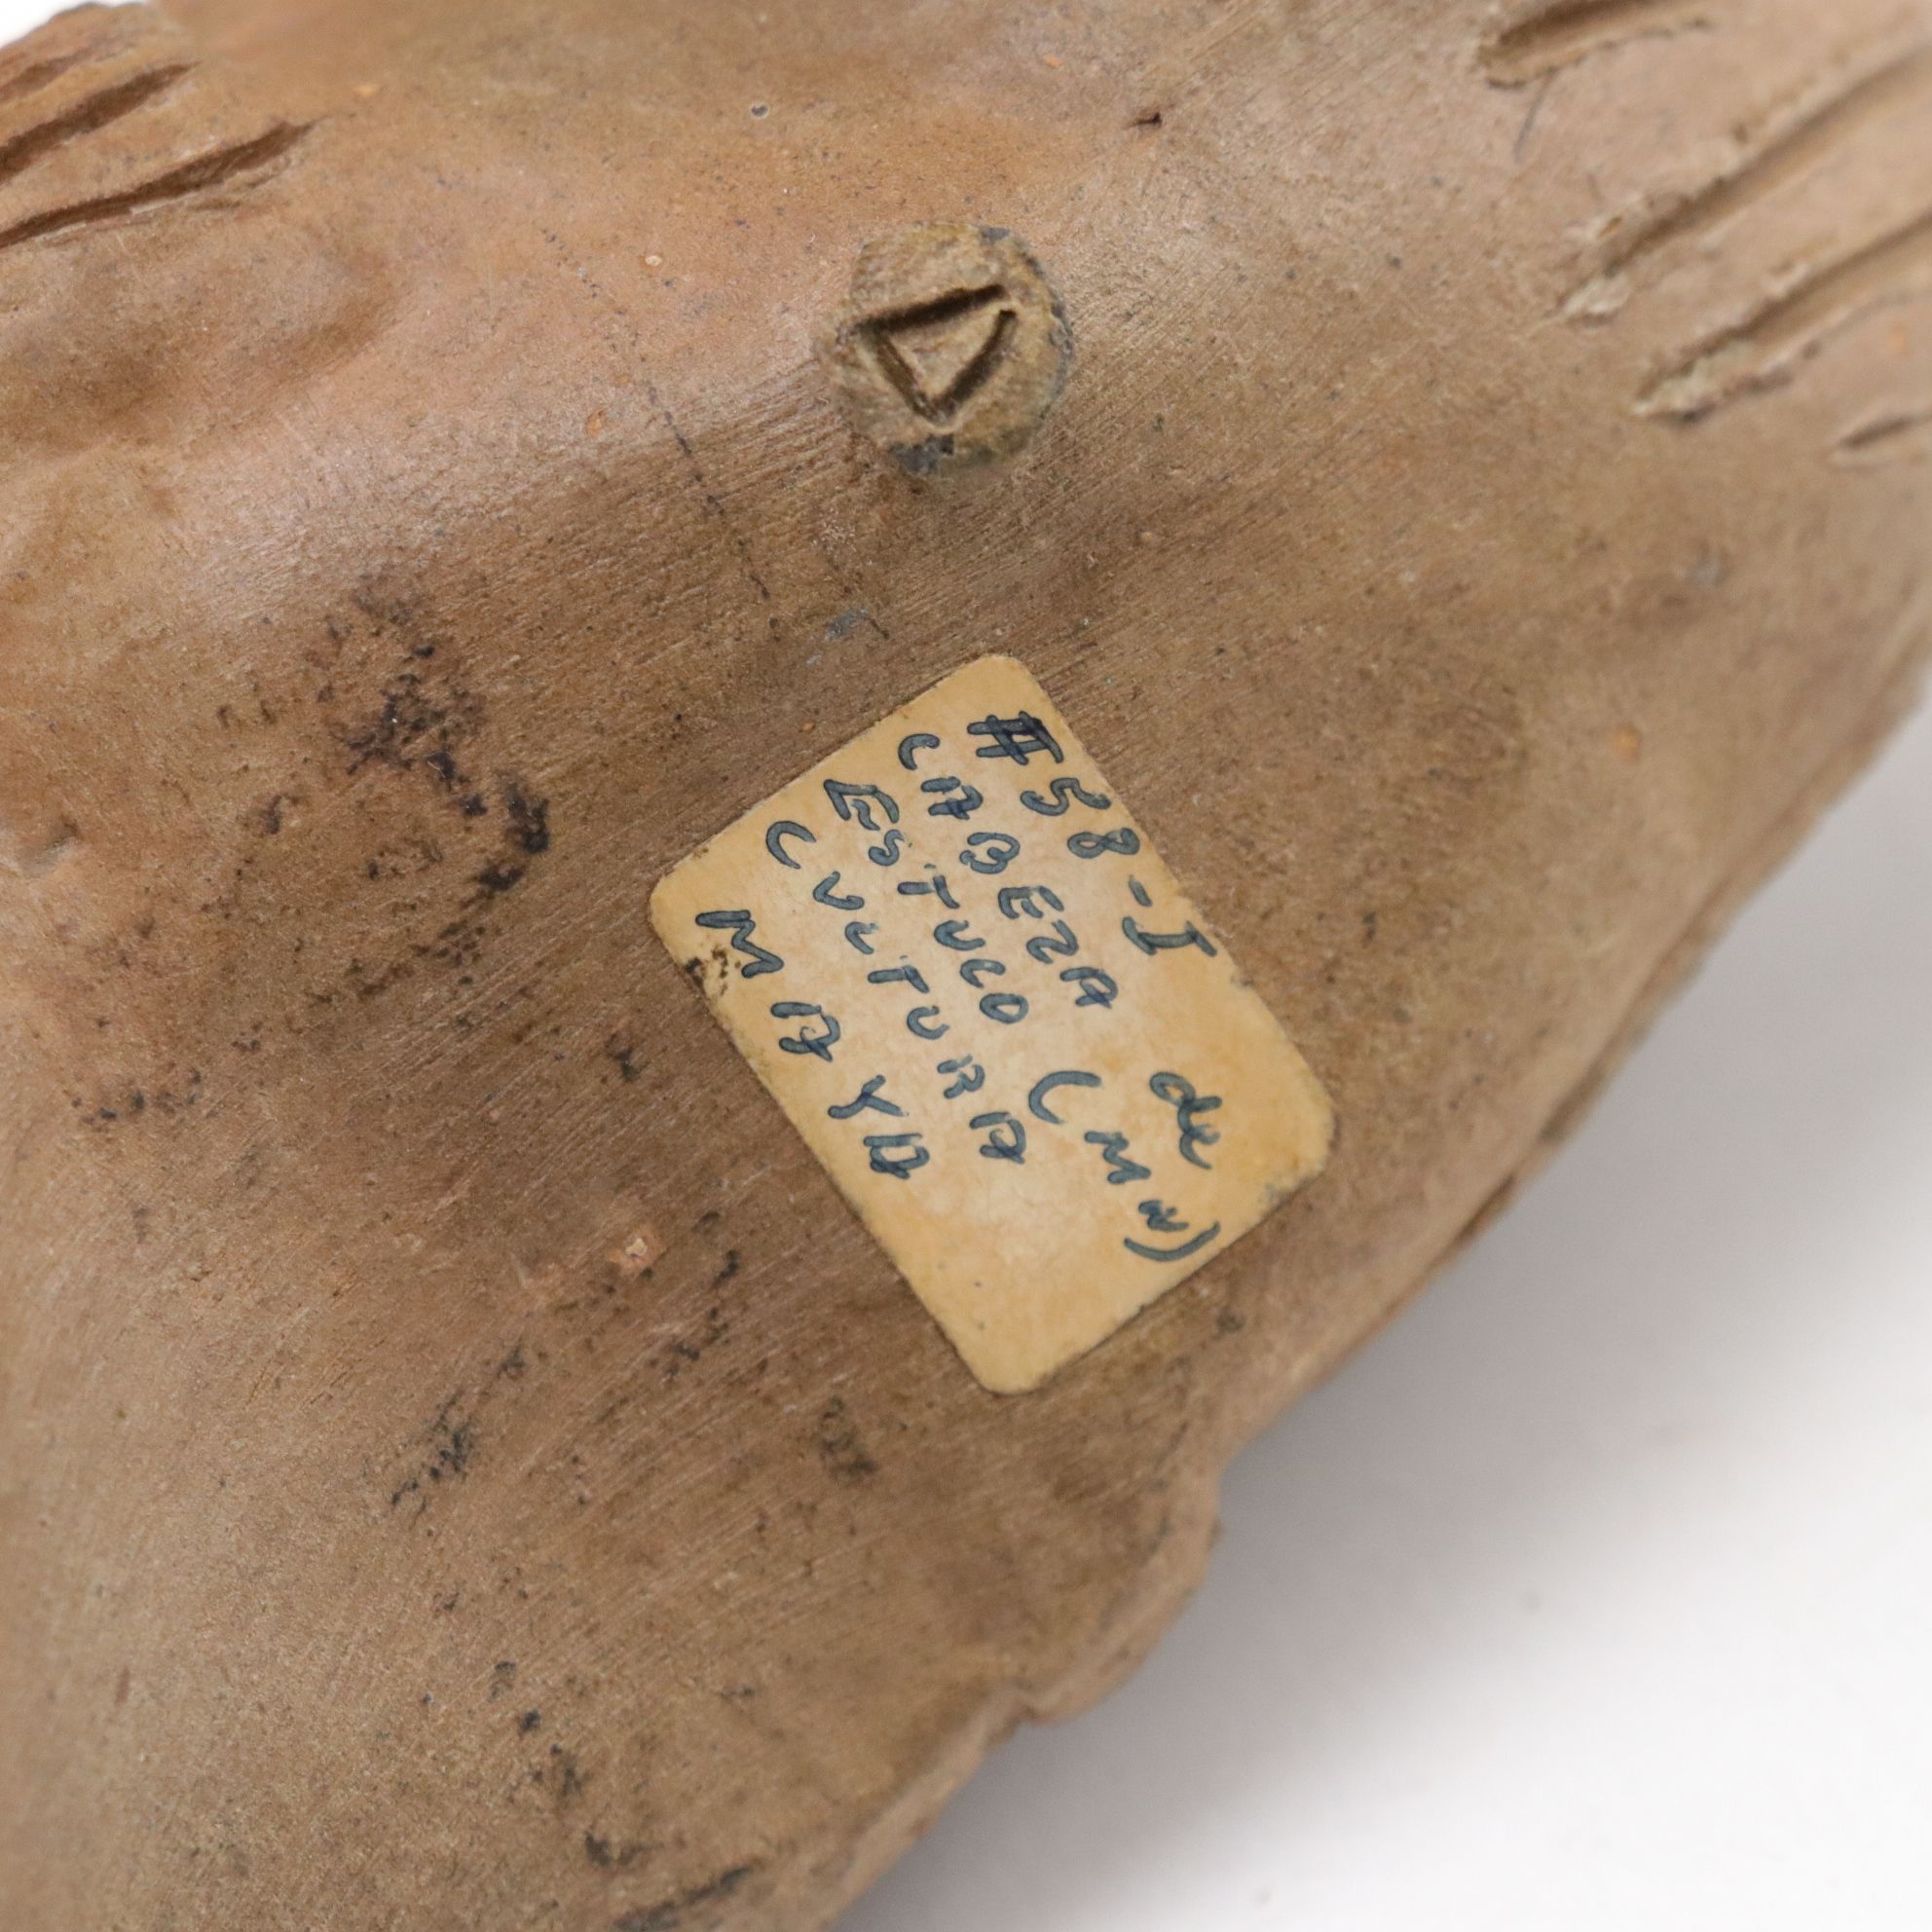 #58-I
CABEZA de
ESTUCO (MW)
CULTURA
MAYA